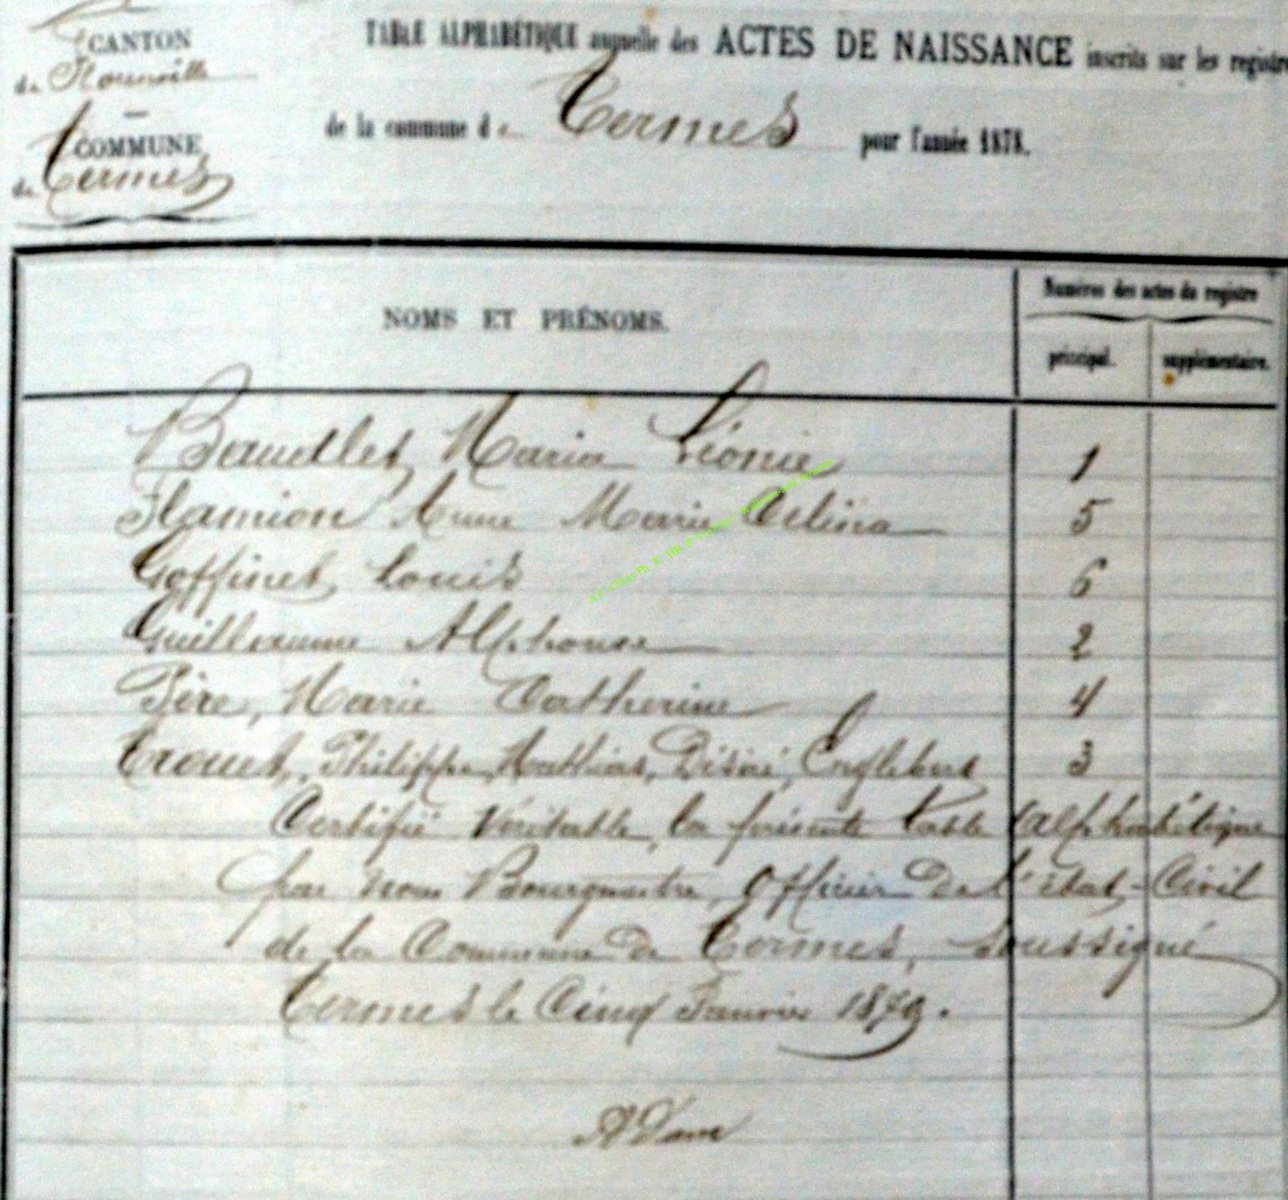 CANTON
de Florenville
COMMUNE
de Termes
TABLE ALPHABÉTIQUE annuelle des ACTES DE NAISSANCE inscrits sur les registre
de la commune de Termes pour l'année 1878.
NOMS ET PRÉNOMS.
Numéros des actes du registre
principal. supplémentaire.
Baudlet, Maria Léonie 1
Flamion Anne Marie Célina 5
Goffinet, Louis 6
Guillaume Alphonse 2
Père, Marie Catherine 4
Trouet, Philippe, Mathias, Désiré, Englebert 3
Certifié véritable, la présente table alphabétique
par nous Bourgmestre, officier de l'état-Civil
de la Commune de Termes, soussigné
Termes le Cinq Janvier 1879.